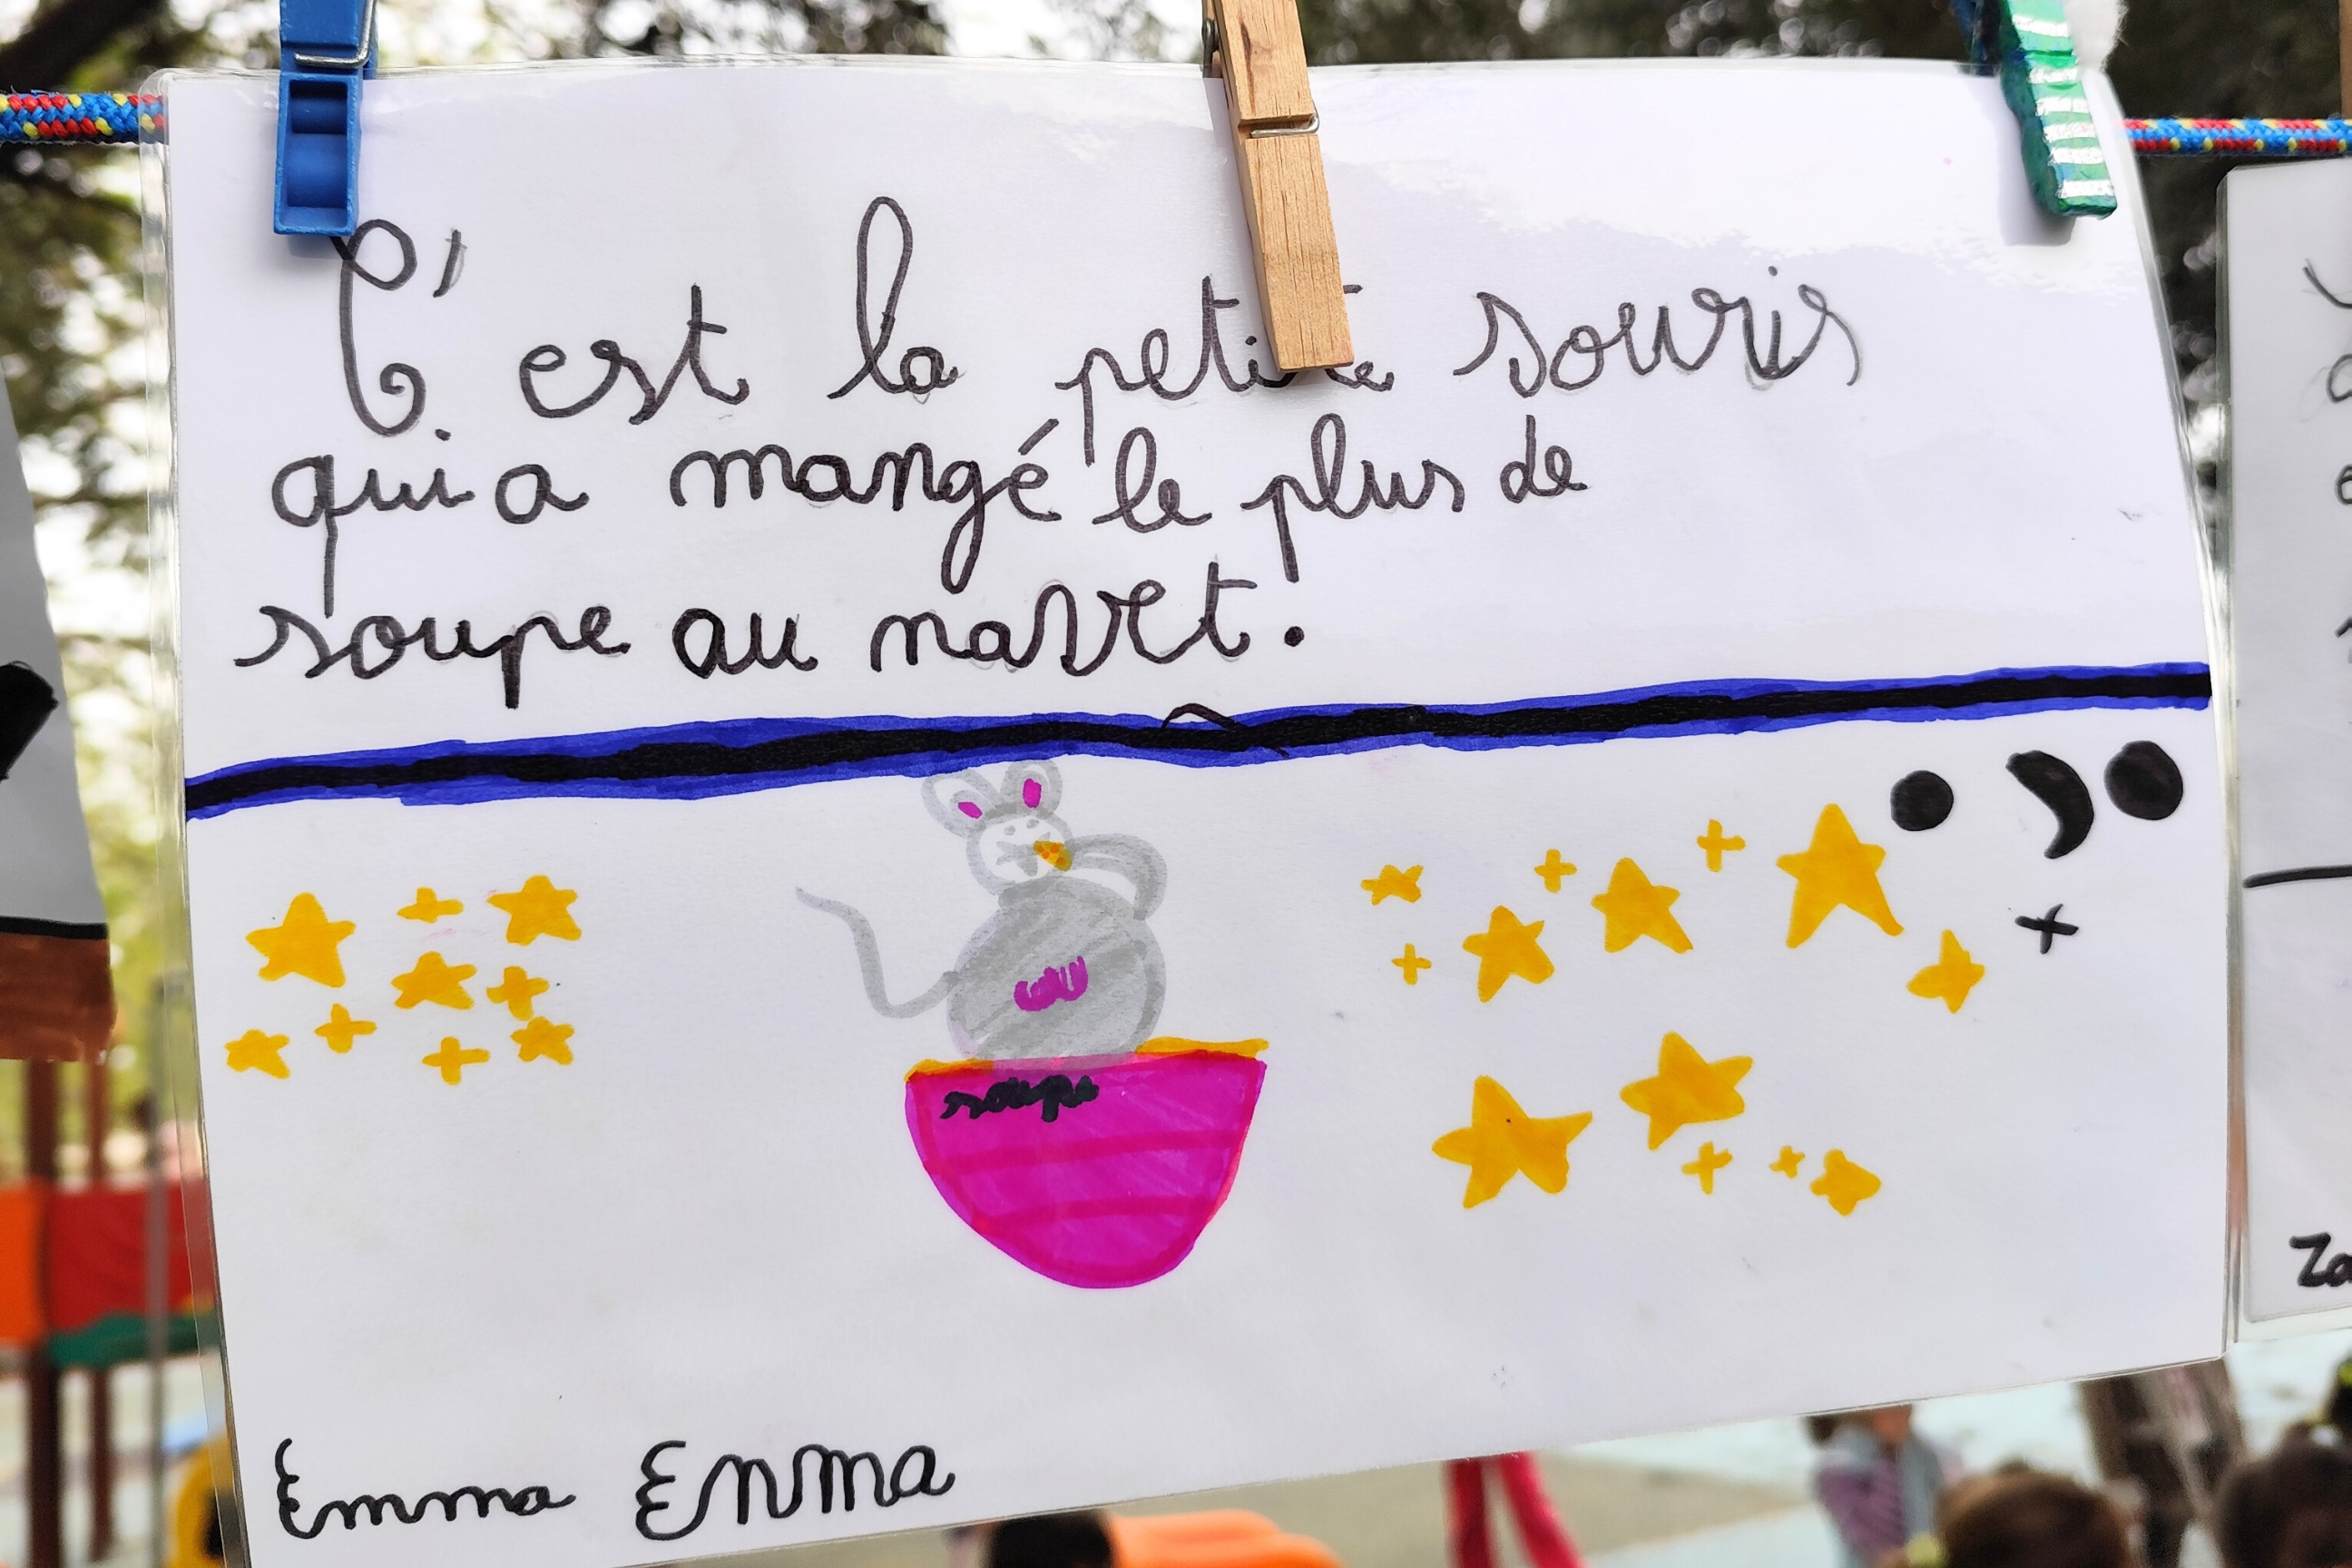 C'est la petite souris
qui a mangé le plus de
soupe au navet.
soupe
Emma Emma